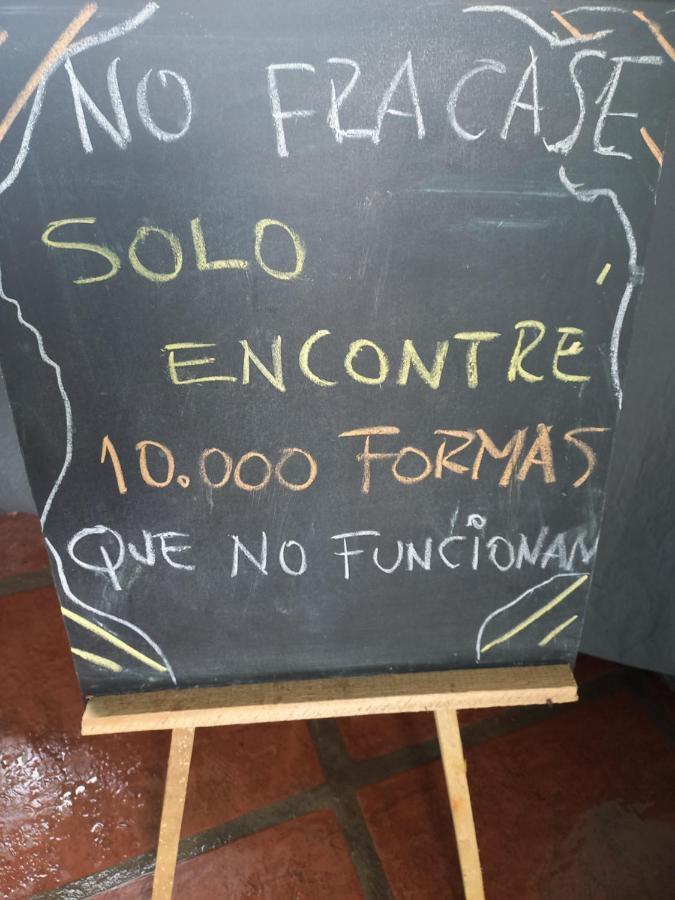 NO FRACASE
SOLO
ENCONTRE
10.000 FORMAS
QUE NO FUNCIONAN